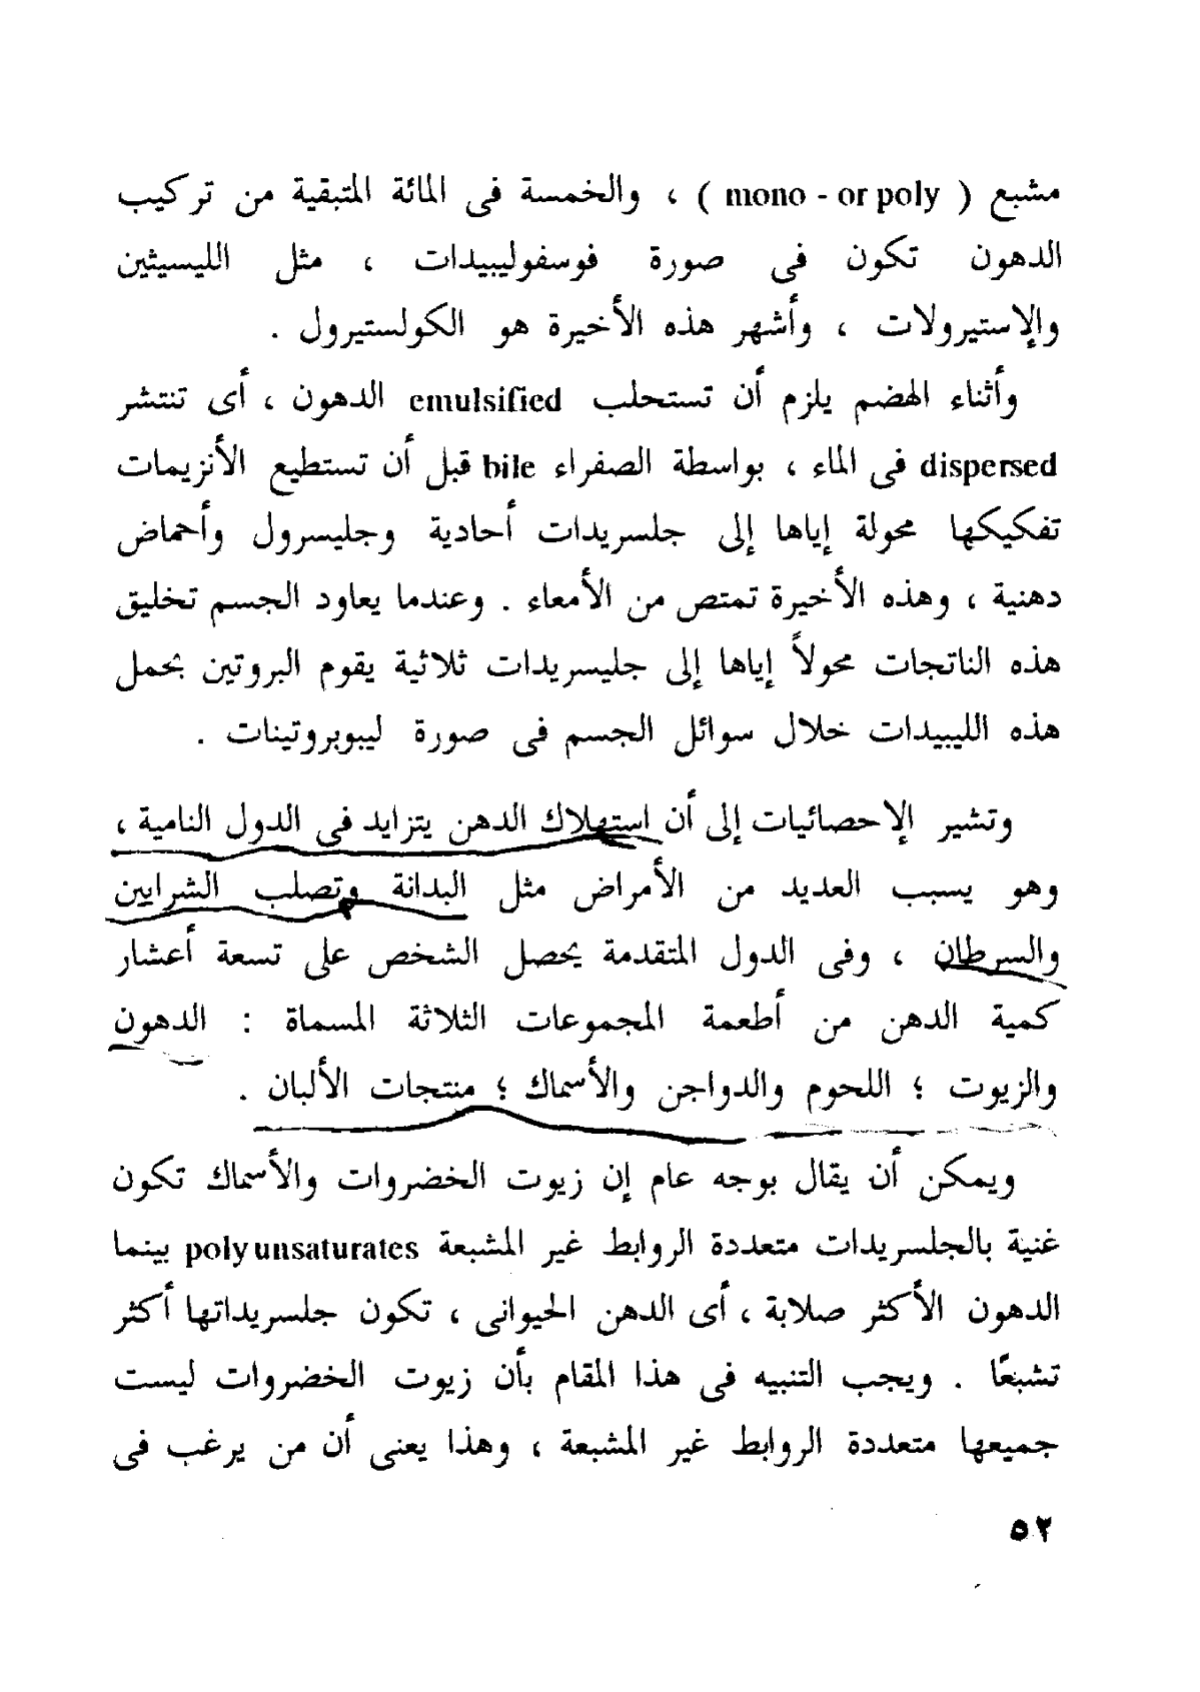 مشبع ( mono - or poly ) ، والخمسة فى المائة المتبقية من تركيب
الدهون تكون فى صورة فوسفوليبيدات ، مثل الليسيثين
والإستيرولات ، وأشهر هذه الأخيرة هو الكولستيرول .
وأثناء الهضم يلزم أن تستحلب emulsified الدهون ، أى تنتشر
dispersed فى الماء ، بواسطة الصفراء bile قبل أن تستطيع الأنزيمات
تفكيكها محولة إياها إلى جلسريدات أحادية وجليسرول وأحماض
دهنية ، وهذه الأخيرة تمتص من الأمعاء . وعندما يعاود الجسم تخليق
هذه الناتجات محولاً إياها إلى جليسريدات ثلاثية يقوم البروتين بحمل
هذه الليبيدات خلال سوائل الجسم فى صورة ليبوبروتينات .
وتشير الإحصائيات إلى أن استهلاك الدهن يتزايد فى الدول النامية ،
وهو يسبب العديد من الأمراض مثل البدانة وتصلب الشرايين
والسرطان ، وفى الدول المتقدمة يحصل الشخص على تسعة أعشار
كمية الدهن من أطعمة المجموعات الثلاثة المسماة : الدهون
والزيوت ؛ اللحوم والدواجن والأسماك ؛ منتجات الألبان .
ويمكن أن يقال بوجه عام إن زيوت الخضروات والأسماك تكون
غنية بالجلسريدات متعددة الروابط غير المشبعة polyunsaturates بينما
الدهون الأكثر صلابة ، أى الدهن الحيوانى ، تكون جلسريداتها أكثر
تشبعًا . ويجب التنبيه فى هذا المقام بأن زيوت الخضروات ليست
جميعها متعددة الروابط غير المشبعة ، وهذا يعنى أن من يرغب فى
٥٢